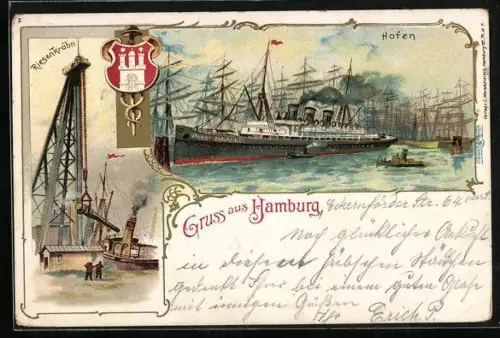 Riesenkrahn
Hafen
Gruss aus Hamburg,
Eckernförder Str. 64
Noch glücklicher Ankunft
in diesem hübschen Städtchen
gedenkt Ihrer bei einem guten Glase
mit innigen Grüßen
Ihr Erich P.